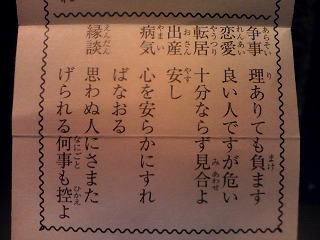 争事 理ありても負ます
恋愛 良い人ですが危い
転居 十分ならず見合よ
出産 安し
病気 心を安らかにすれ
ばなおる
縁談 思わぬ人にさまた
げられる何事も控よ